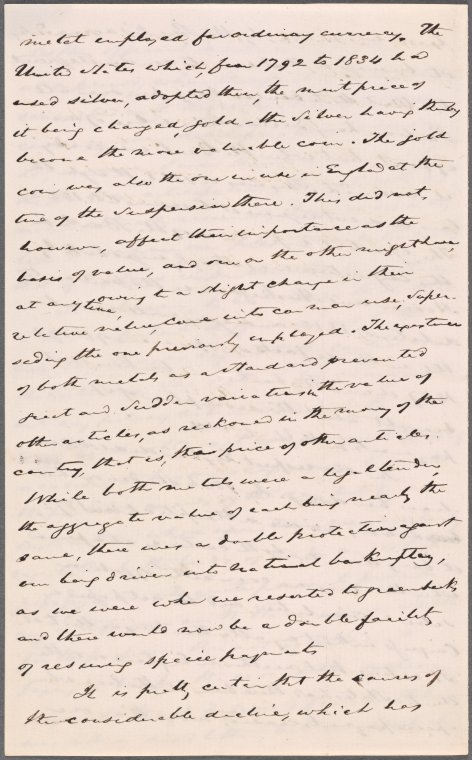 metal employed for ordinary currency. The
United States which, from 1792 to 1834 had
used silver, adopted then, the mint price of
it being changed, gold - the silver having thereby
become the more valuable coin. The gold
coin was also the one in use in England at the
time of the suspension there. This did not,
however, affect their importance as the
basis of value, and one or the other might have,
at any time, owing to a slight change in their
relative value, come into common use, super-
seding the one previously employed. The existence
of both metals as a standard prevented
great and sudden variations in the value of
other articles, as reckoned in the money of the
country, that is, the price of other articles.
While both metals were a legal tender,
the aggregate value of each being nearly the
same, there was a double protection against
our being driven into national bankruptcy,
as we were when we resorted to greenbacks
and there would now be a double facility
of resuming specie payments
It is pretty certain that the causes of
the considerable decline, which has